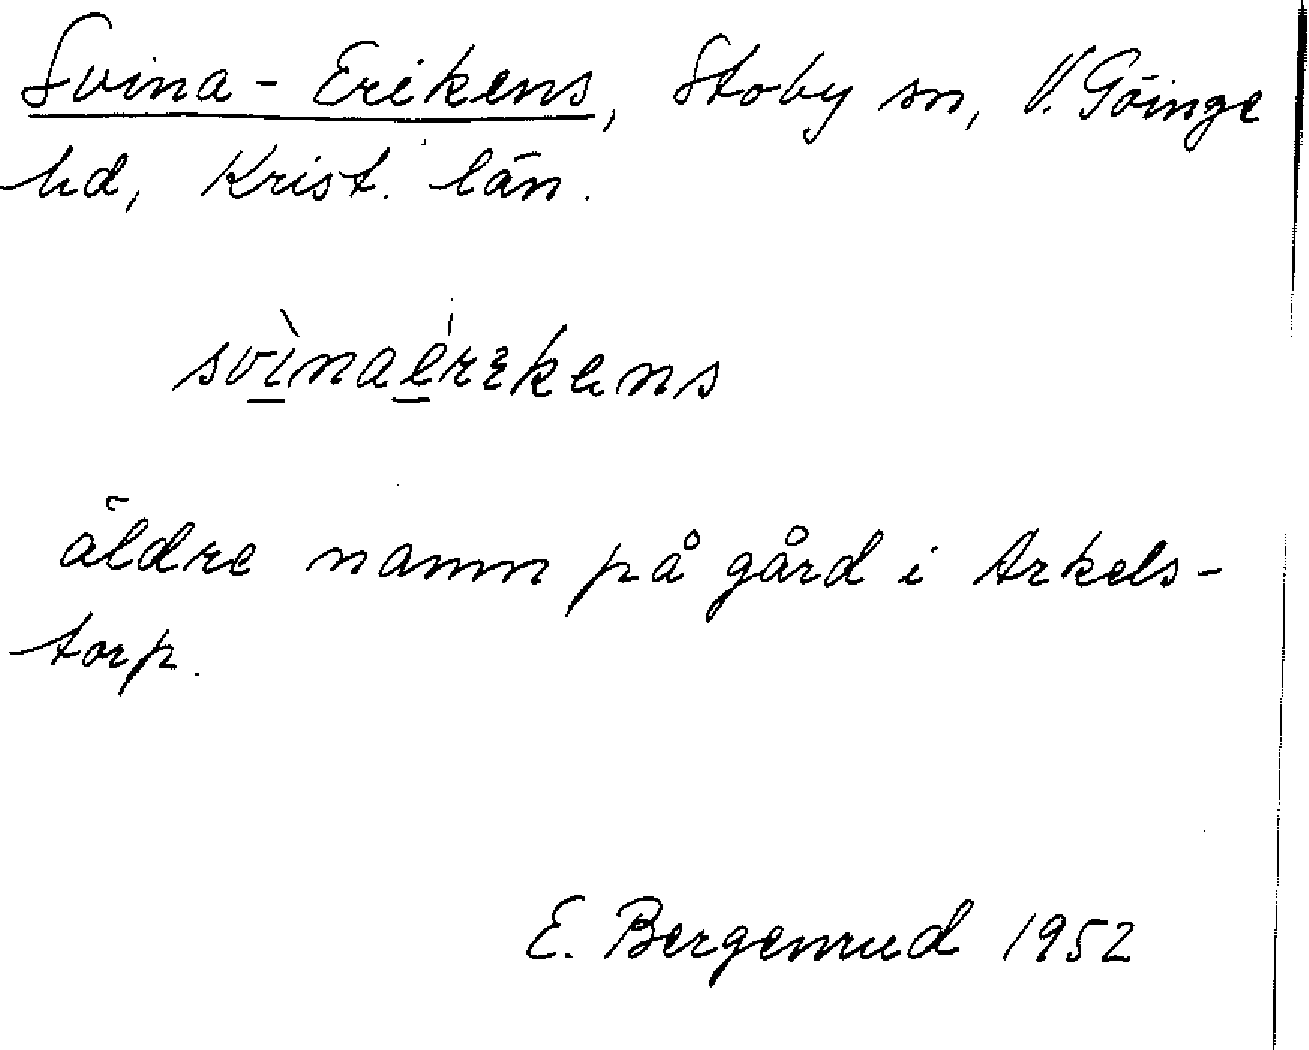 Svina-Erikens, Stoby sn, V. Göinge
hd, Krist. län.
svì̲naé̲rekens
äldre namn på gård i Arkels-
torp.
E. Bergenrud 1952